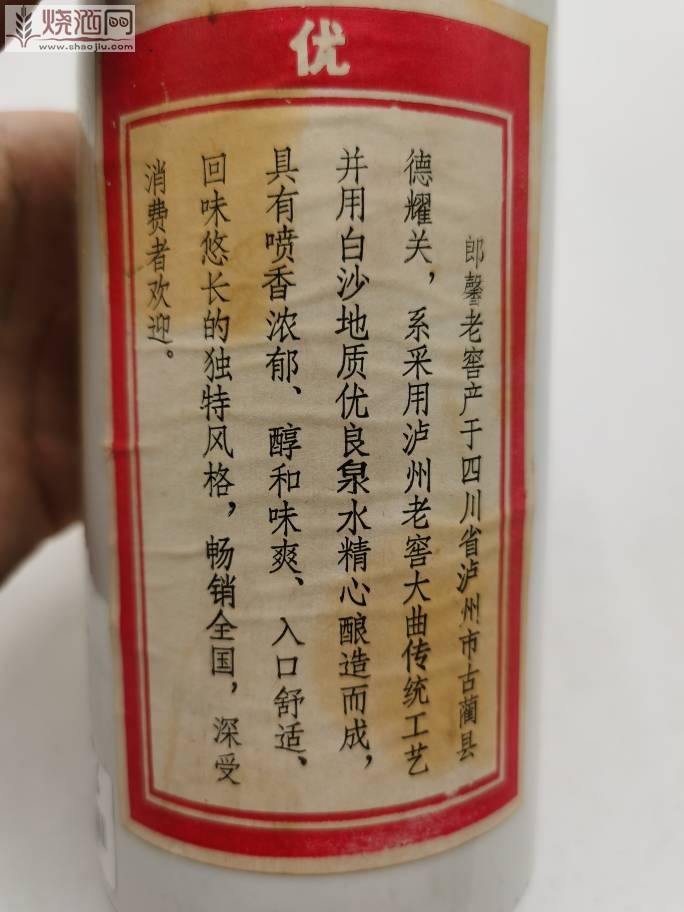 烧酒网
www.shaojiu.com
优
郎馨老窖产于四川省泸州市古蔺县
德耀关，系采用泸州老窖大曲传统工艺
并用白沙地质优良泉水精心酿造而成，
具有喷香浓郁、醇和味爽、入口舒适、
回味悠长的独特风格，畅销全国，深受
消费者欢迎。